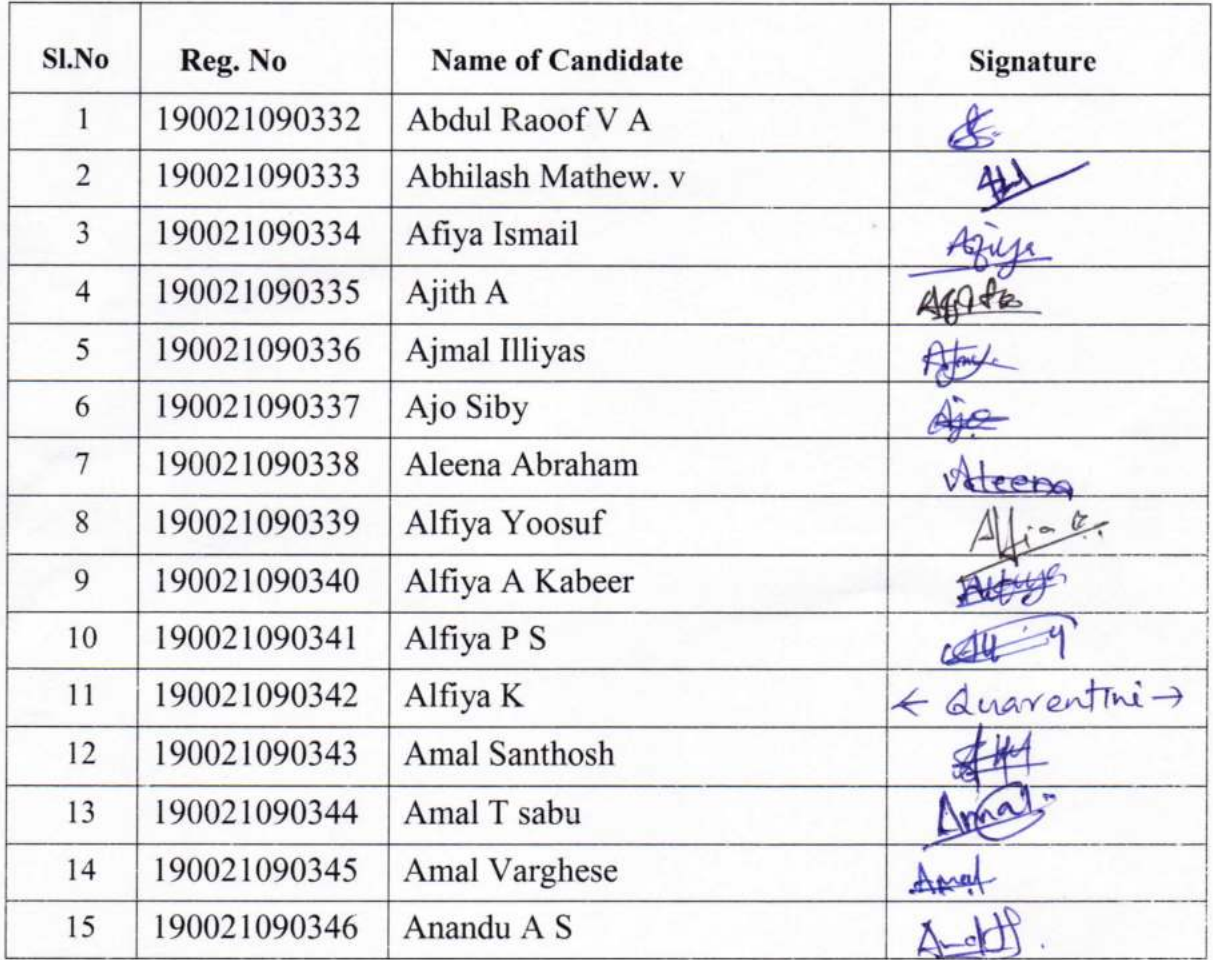 Sl.No Reg. No Name of Candidate Signature
1 190021090332 Abdul Raoof V A
2 190021090333 Abhilash Mathew. v
3 190021090334 Afiya Ismail Afiya
4 190021090335 Ajith A
5 190021090336 Ajmal Illiyas
6 190021090337 Ajo Siby Ajo
7 190021090338 Aleena Abraham Aleena
8 190021090339 Alfiya Yoosuf
9 190021090340 Alfiya A Kabeer Alfiya
10 190021090341 Alfiya P S
11 190021090342 Alfiya K ← Quarentini →
12 190021090343 Amal Santhosh
13 190021090344 Amal T sabu Amal
14 190021090345 Amal Varghese Amal
15 190021090346 Anandu A S